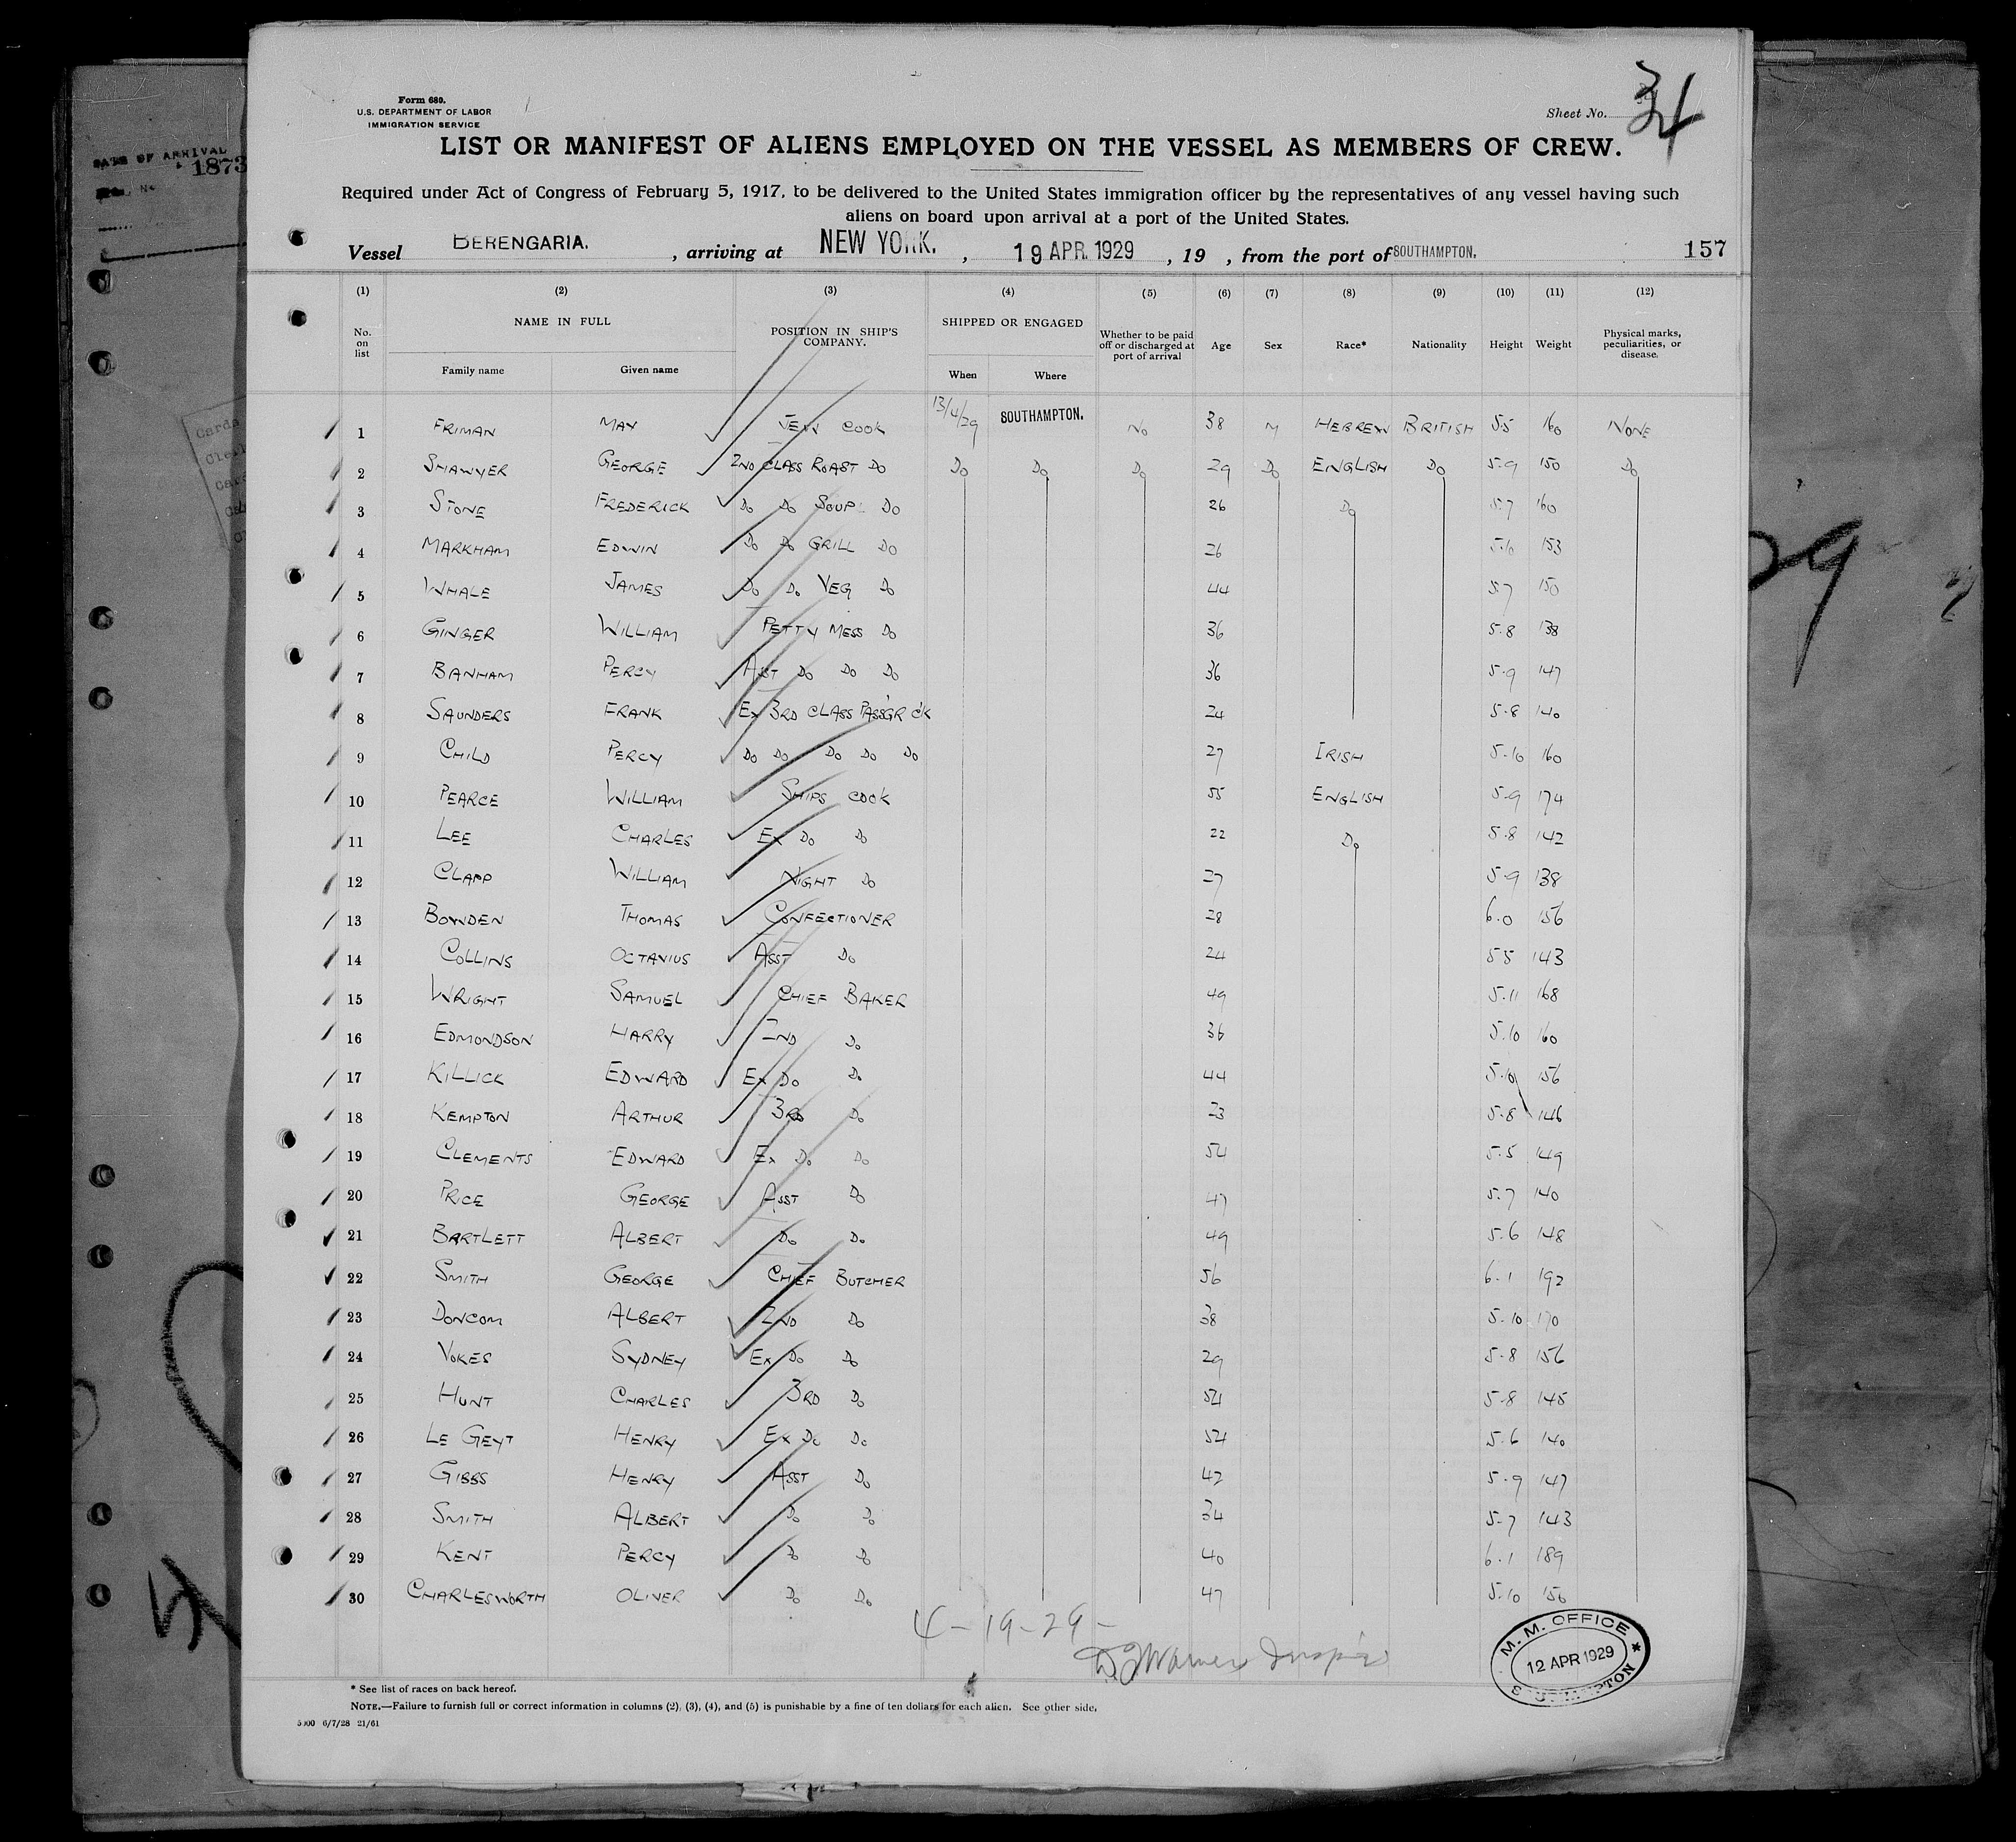 DATE OF ARRIVAL
1873
Form 680.
U.S. DEPARTMENT OF LABOR
IMMIGRATION SERVICE
Sheet No. 34
LIST OR MANIFEST OF ALIENS EMPLOYED ON THE VESSEL AS MEMBERS OF CREW.
Required under Act of Congress of February 5, 1917, to be delivered to the United States immigration officer by the representatives of any vessel having such
aliens on board upon arrival at a port of the United States.
Vessel BERENGARIA. , arriving at NEW YORK. , 19 APR. 1929 , 19 , from the port of SOUTHAMPTON. 157
(1) (2) (3) (4) (5) (6) (7) (8) (9) (10) (11) (12)
No. on list NAME IN FULL Family name Given name POSITION IN SHIP'S COMPANY. SHIPPED OR ENGAGED When Where Whether to be paid off or discharged at port of arrival Age Sex Race* Nationality Height Weight Physical marks, peculiarities, or disease.
1 FRIMAN MAX JEW COOK 13/4/29 SOUTHAMPTON. NO 38 M HEBREW BRITISH 5.5 160 NONE
2 SHAWYER GEORGE 2ND CLASS ROAST DO DO DO DO 29 DO ENGLISH DO 5.9 150 DO
3 STONE FREDERICK DO DO SOUP DO 26 DO 5.7 160
4 MARKHAM EDWIN DO DO GRILL DO 26 5.10 153
5 WHALE JAMES DO DO VEG DO 44 5.7 150
6 GINGER WILLIAM PETTY MESS DO 36 5.8 138
7 BANHAM PERCY ASST DO DO DO 36 5.9 147
8 SAUNDERS FRANK EX 3RD CLASS PASS'GR C'K 24 5.8 140
9 CHILD PERCY DO DO DO DO DO 27 IRISH 5.10 160
10 PEARCE WILLIAM SHIPS COOK 55 ENGLISH 5.9 174
11 LEE CHARLES EX DO DO 22 DO 5.8 142
12 CLAPP WILLIAM NIGHT DO 27 5.9 138
13 BOWDEN THOMAS CONFECTIONER 28 6.0 156
14 COLLINS OCTAVIUS ASST DO 24 5.5 143
15 WRIGHT SAMUEL CHIEF BAKER 49 5.11 168
16 EDMONDSON HARRY 2ND DO 36 5.10 160
17 KILLICK EDWARD EX DO DO 44 5.10 156
18 KEMPTON ARTHUR 3RD DO 23 5.8 146
19 CLEMENTS EDWARD EX DO DO 54 5.5 149
20 PRICE GEORGE ASST DO 47 5.7 140
21 BARTLETT ALBERT DO DO 49 5.6 148
22 SMITH GEORGE CHIEF BUTCHER 56 6.1 192
23 DONCOM ALBERT 2ND DO 38 5.10 170
24 VOKES SYDNEY EX DO DO 29 5.8 156
25 HUNT CHARLES 3RD DO 54 5.8 145
26 LE GEYT HENRY EX DO DO 54 5.6 140
27 GIBBS HENRY ASST DO 42 5.9 147
28 SMITH ALBERT DO DO 34 5.7 143
29 KENT PERCY DO DO 40 6.1 189
30 CHARLESWORTH OLIVER DO DO 47 5.10 156
4-19-29-
M. M. OFFICE
12 APR 1929
SOUTHAMPTON
* See list of races on back hereof.
NOTE.—Failure to furnish full or correct information in columns (2), (3), (4), and (5) is punishable by a fine of ten dollars for each alien. See other side.
5000 6/7/28 21/61